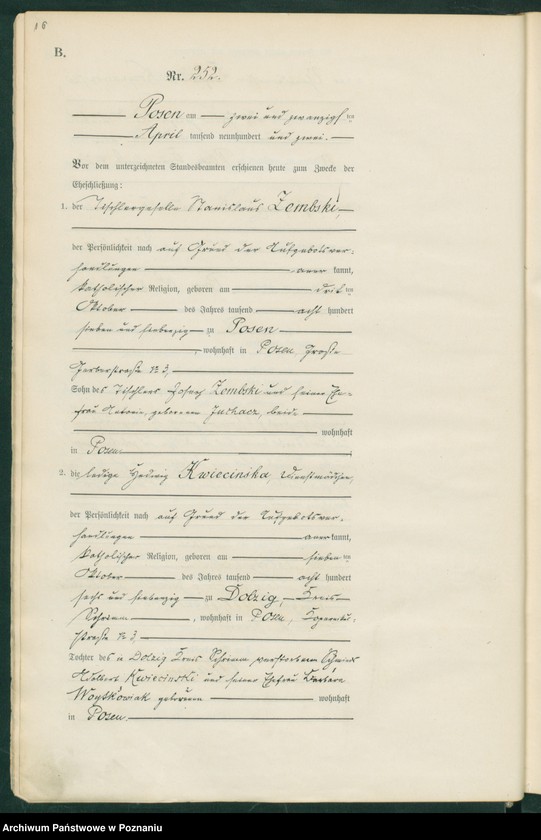 16
B.
Nr. 252.
Posen am zwei und zwanzigsten
April tausend neunhundert und zwei.
Vor dem unterzeichneten Standesbeamten erschienen heute zum Zwecke der
Eheschließung:
1. der Tischlergeselle Stanislaus Zembski,
der Persönlichkeit nach auf Grund der Aufgebotsver-
handlungen anerkannt,
katholischer Religion, geboren am dritten
Oktober des Jahres tausend acht hundert
sieben und siebenzig zu Posen
, wohnhaft in Posen, Große
Gerberstraße N 3,
Sohn des Tischlers Josef Zembski und seiner Ehe-
frau geborenen Juchacz, beide
wohnhaft
in Posen
2. die ledige Hedwig Kwiecinska, Dienstmädchen,
der Persönlichkeit nach auf Grund der Aufgebotsver-
handlungen anerkannt,
katholischer Religion, geboren am sieben ten
Oktober des Jahres tausend acht hundert
sechs und siebenzig zu Dolzig, Kreis
Schrimm, wohnhaft in Posen,
straße N 3,
Tochter des in Dolzig Kreis Schrimm verstorbenen
Adalbert Kwiecinski und seiner Ehefrau Barbara
Woytkowiak geborenen wohnhaft
in Posen.
Archiwum Państwowe w Poznaniu